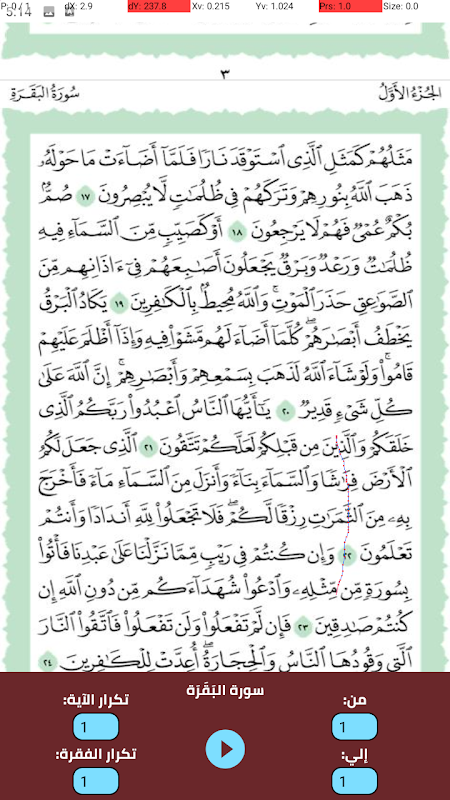 P: 0 / 1 dX: 2.9 dY: 237.8 Xv: 0.215 Yv: 1.024 Prs: 1.0 Size: 0.0
5:14
٣
الجُزْءُ الأَوَّلُ سُورَةُ البَقَرَةِ
مَثَلُهُمْ كَمَثَلِ ٱلَّذِى ٱسْتَوْقَدَ نَارًا فَلَمَّآ أَضَآءَتْ مَا حَوْلَهُۥ
ذَهَبَ ٱللَّهُ بِنُورِهِمْ وَتَرَكَهُمْ فِى ظُلُمَٰتٍ لَّا يُبْصِرُونَ ١٧ صُمٌّۢ
بُكْمٌ عُمْىٌ فَهُمْ لَا يَرْجِعُونَ ١٨ أَوْ كَصَيِّبٍ مِّنَ ٱلسَّمَآءِ فِيهِ
ظُلُمَٰتٌ وَرَعْدٌ وَبَرْقٌ يَجْعَلُونَ أَصَٰبِعَهُمْ فِىٓ ءَاذَانِهِم مِّنَ
ٱلصَّوَٰعِقِ حَذَرَ ٱلْمَوْتِ ۚ وَٱللَّهُ مُحِيطٌۢ بِٱلْكَٰفِرِينَ ١٩ يَكَادُ ٱلْبَرْقُ
يَخْطَفُ أَبْصَٰرَهُمْ ۖ كُلَّمَآ أَضَآءَ لَهُم مَّشَوْا۟ فِيهِ وَإِذَآ أَظْلَمَ عَلَيْهِمْ
قَامُوا۟ ۚ وَلَوْ شَآءَ ٱللَّهُ لَذَهَبَ بِسَمْعِهِمْ وَأَبْصَٰرِهِمْ ۚ إِنَّ ٱللَّهَ عَلَىٰ
كُلِّ شَىْءٍ قَدِيرٌ ٢٠ يَٰٓأَيُّهَا ٱلنَّاسُ ٱعْبُدُوا۟ رَبَّكُمُ ٱلَّذِى
خَلَقَكُمْ وَٱلَّذِينَ مِن قَبْلِكُمْ لَعَلَّكُمْ تَتَّقُونَ ٢١ ٱلَّذِى جَعَلَ لَكُمُ
ٱلْأَرْضَ فِرَٰشًا وَٱلسَّمَآءَ بِنَآءً وَأَنزَلَ مِنَ ٱلسَّمَآءِ مَآءً فَأَخْرَجَ
بِهِۦ مِنَ ٱلثَّمَرَٰتِ رِزْقًا لَّكُمْ ۖ فَلَا تَجْعَلُوا۟ لِلَّهِ أَندَادًا وَأَنتُمْ
تَعْلَمُونَ ٢٢ وَإِن كُنتُمْ فِى رَيْبٍ مِّمَّا نَزَّلْنَا عَلَىٰ عَبْدِنَا فَأْتُوا۟
بِسُورَةٍ مِّن مِّثْلِهِۦ وَٱدْعُوا۟ شُهَدَآءَكُم مِّن دُونِ ٱللَّهِ إِن
كُنتُمْ صَٰدِقِينَ ٢٣ فَإِن لَّمْ تَفْعَلُوا۟ وَلَن تَفْعَلُوا۟ فَٱتَّقُوا۟ ٱلنَّارَ
ٱلَّتِى وَقُودُهَا ٱلنَّاسُ وَٱلْحِجَارَةُ ۖ أُعِدَّتْ لِلْكَٰفِرِينَ ٢٤
سورة البَقَرَة
من: 1 تكرار الآية: 1
إلي: 1 تكرار الفقرة: 1